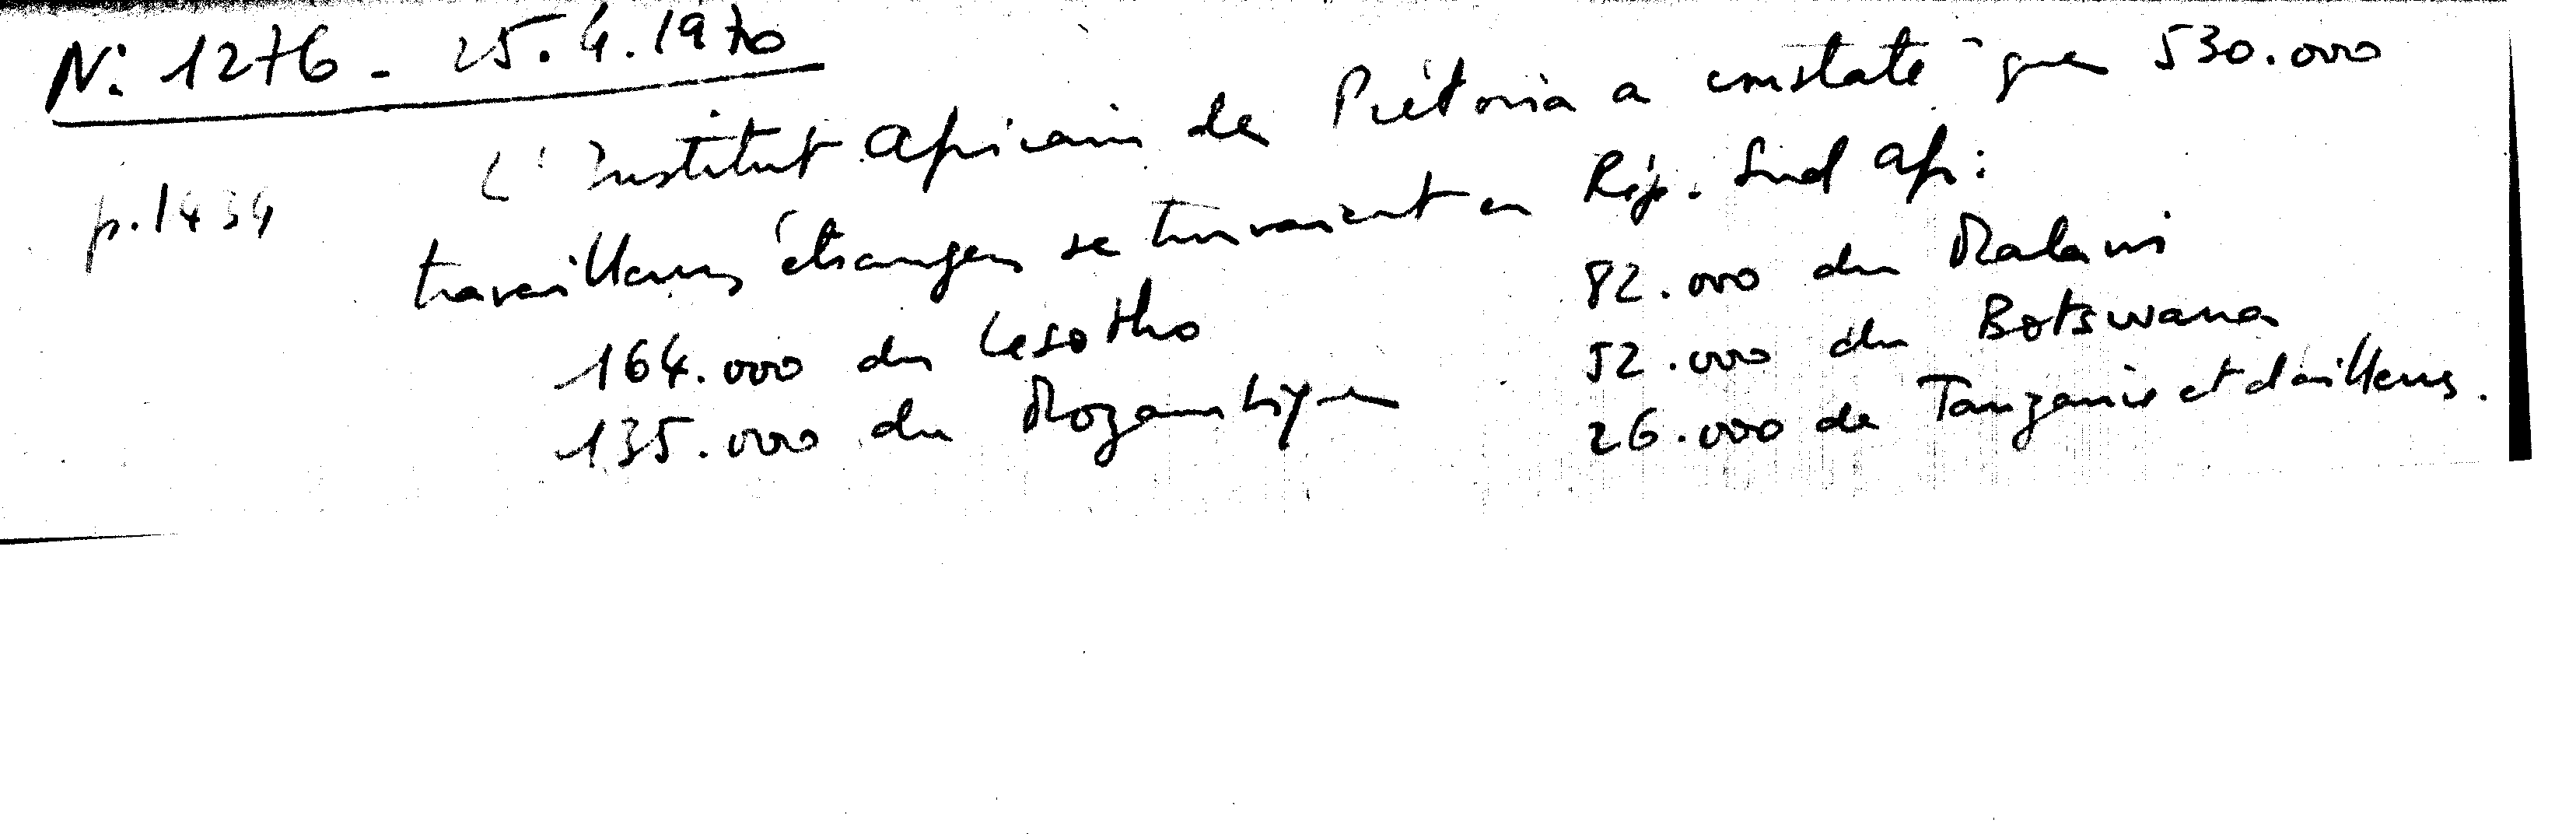 N: 1276 - 25.4.1970
p.1434
L'Institut Africain de Prétoria a constaté que 530.000
travailleurs étrangers se trouvaient en Rép. Sud Afr:
164.000 du Lesotho
135.000 du Mozambique
82.000 du Malawi
52.000 du Botswana
26.000 de Tanzanie et d'ailleurs.